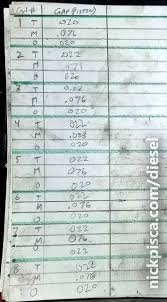 Cyl# GAP (PISTON)
1 T .020
M .076
O .020
2 T .022
M .071
O .020
3 T .022
M .076
O .020
4 T .022
M .078
O .020
5 T .022
M .076
O .020
6 T .022
M .076
O .020
7 T .022
M .076
O .022
8 T .022
M .078
O .020
nickpisca.com/diesel